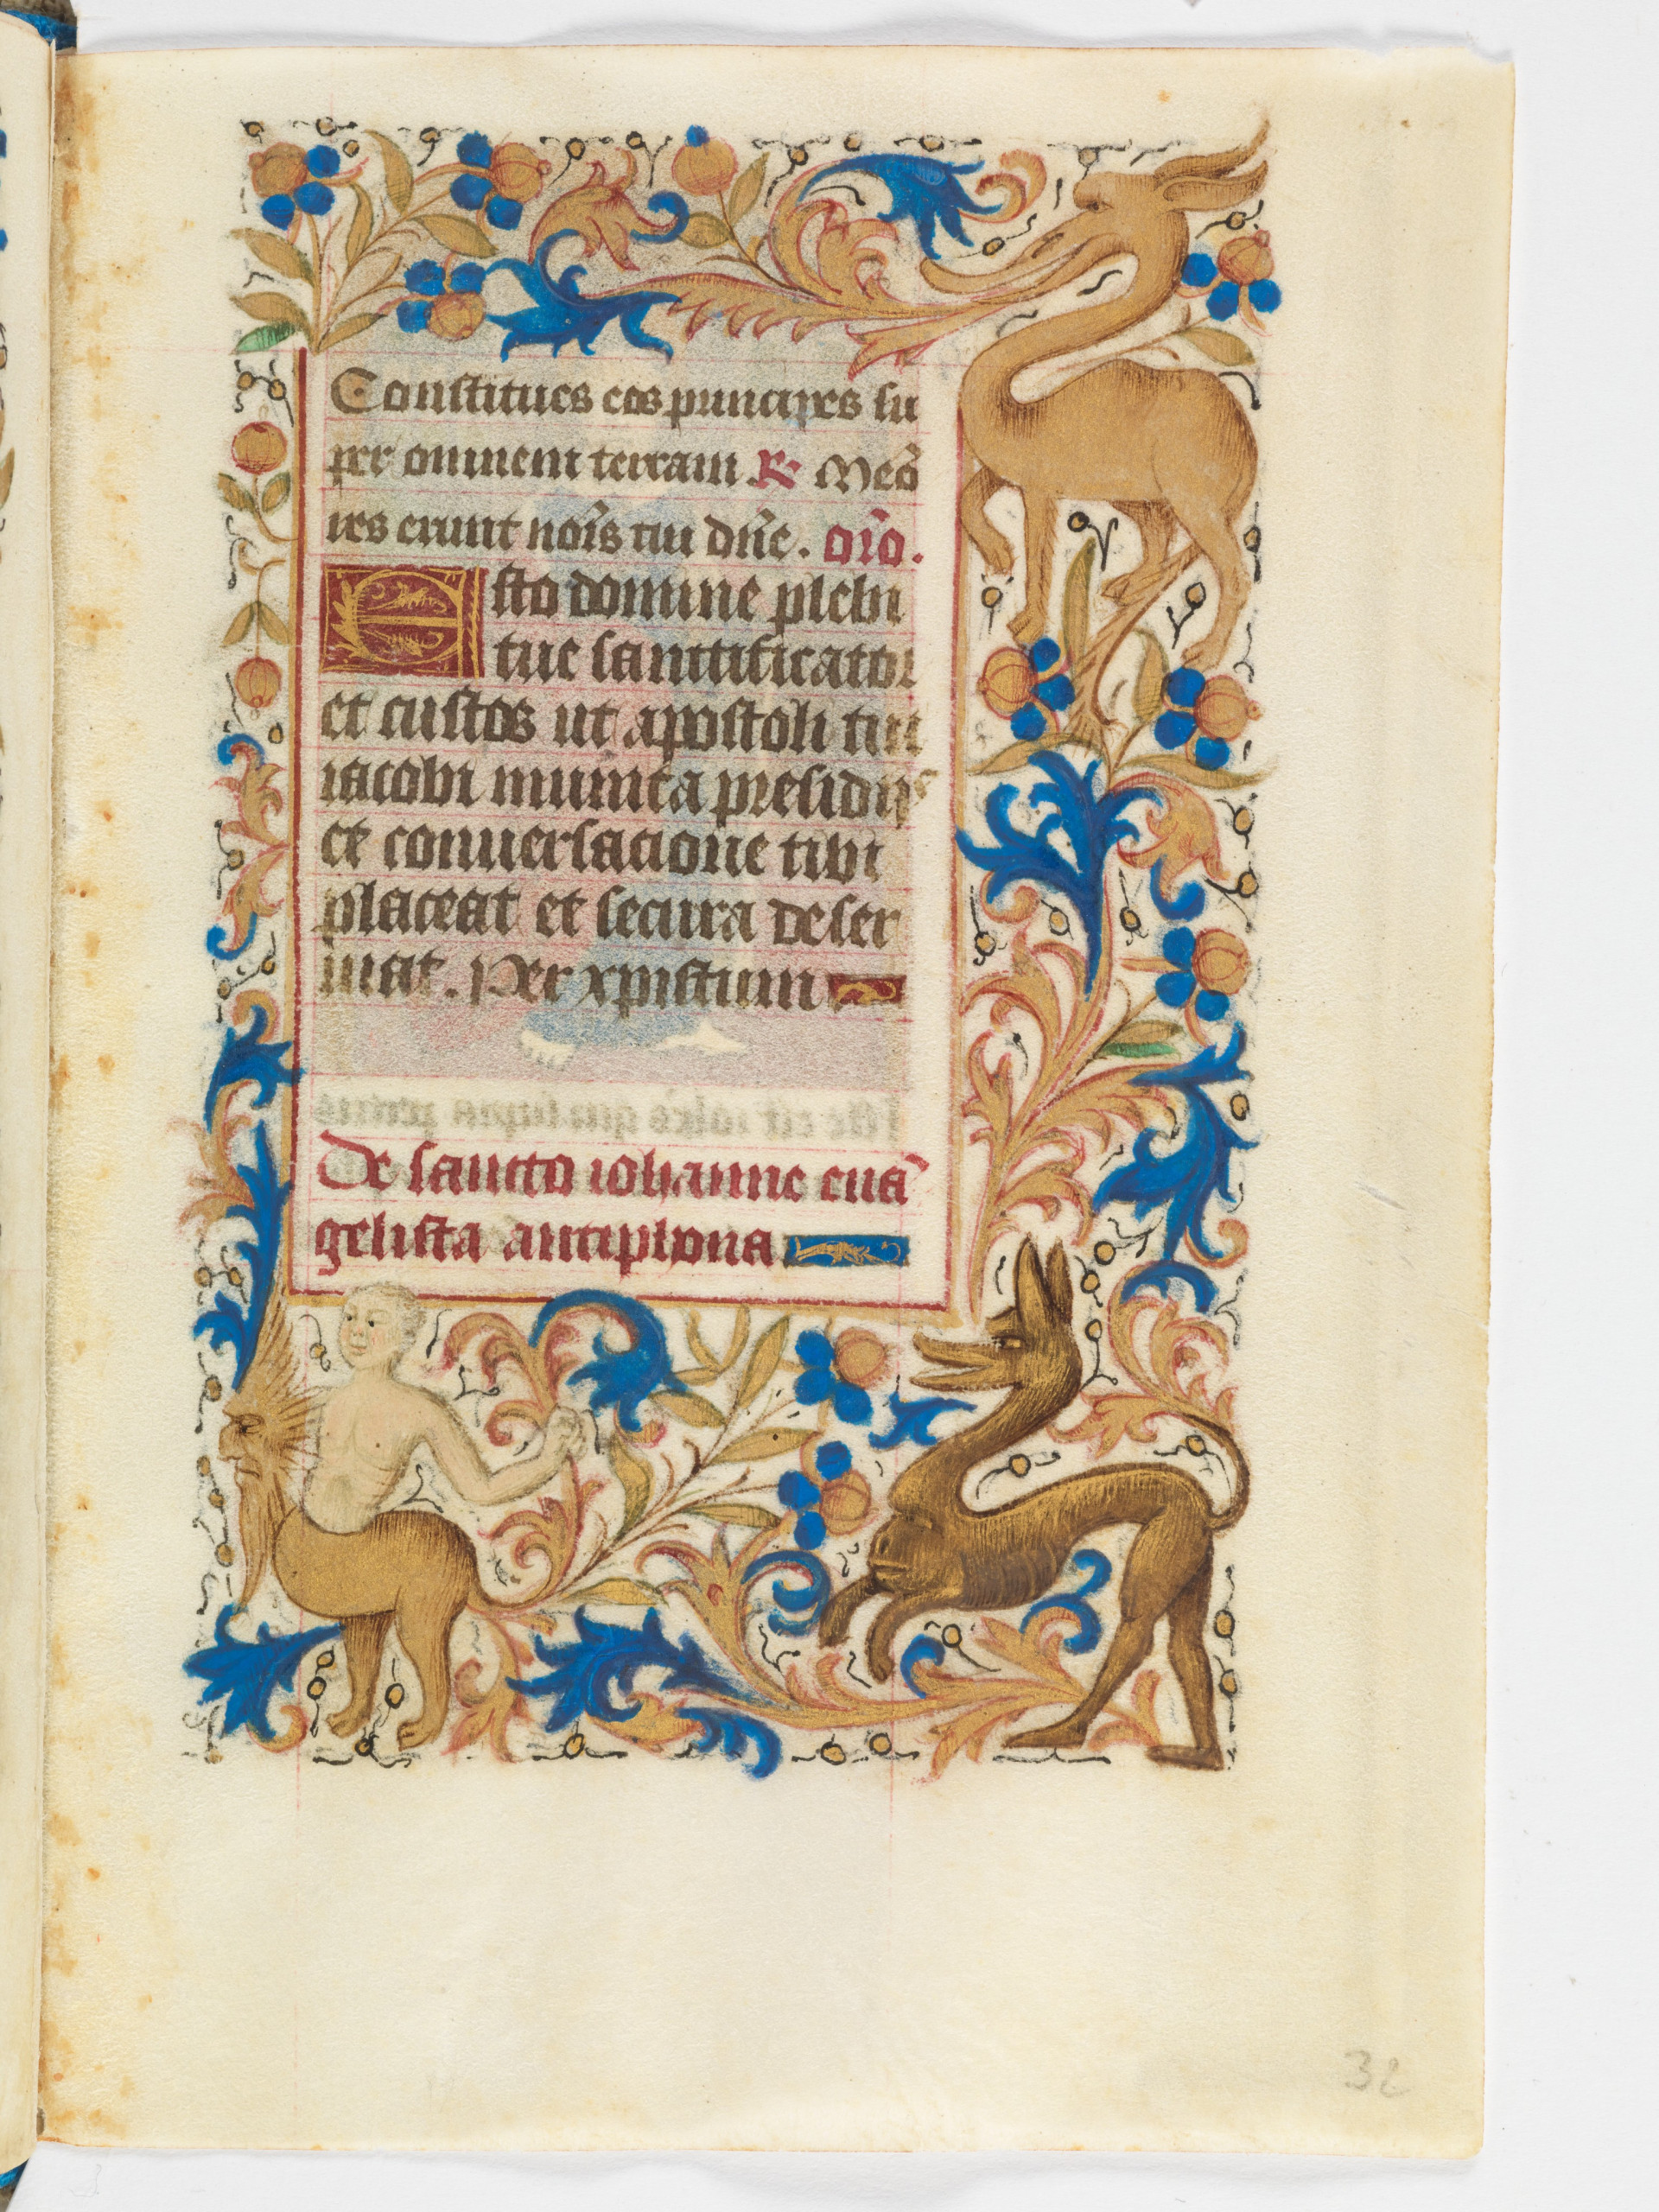 Constitues eos principes su
per omnem terram ℟ Meō
ires erunt nōīs tui dn̄e. or̄o.
Esto domine plebi
tue santtificator
et custos ut apostoli tui
iacobi munita presidiis
et conuersatione tibi
placeat et secura deser
uiat. Per xpistum
De sancto iohanne euā
gelista antiphona
32